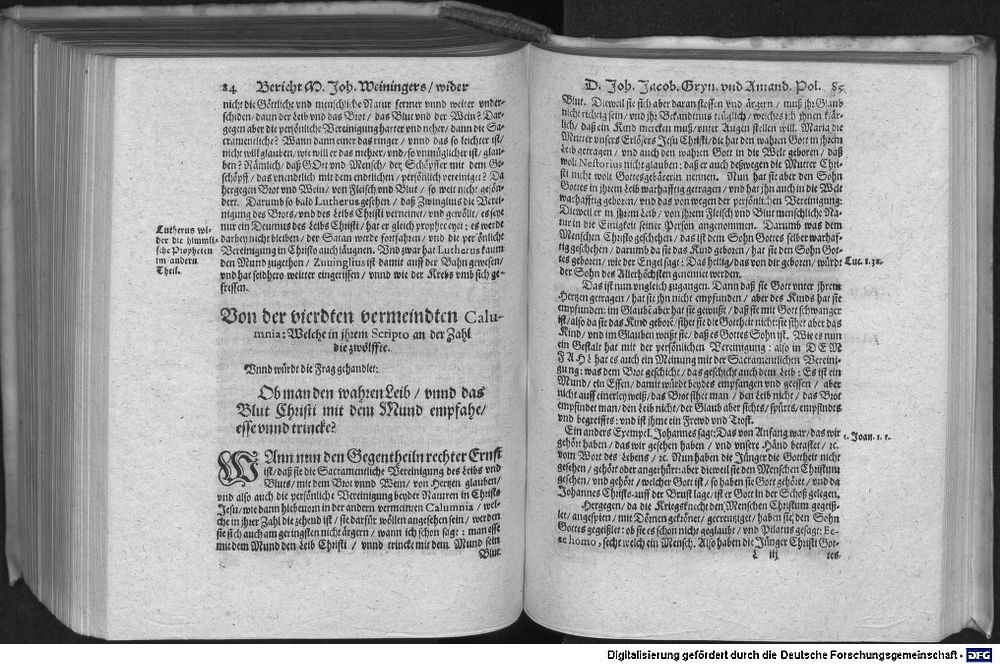 84 Bericht M. Joh. Weiningers / wider
nicht die Göttliche vnd menschliche Natur ferrner vnnd weiter vnder-
schiden / dann der Leib vnd das Brot / das Blut vnd der Wein? Dar-
gegen aber die persönliche Vereinigung harter vnd neher / dann die Sa-
cramentliche? Wann dann einer das ringer / vnnd das so leichter ist /
nicht will glauben / wie will er das mehrer / vnd / so vnmüglicher ist / glau-
ben? Nämlich / daß GOtt vnd Mensch / der Schöpffer mit dem Ge-
schöpff / das vnendtlich mit dem endtlichen / persönlich vereiniget? Da
hergegen Brot vnd Wein / von Fleisch vnd Blut / so weit nicht gesön-
dert. Darumb so bald Lutherus gesehen / daß Zwinglius die Verei-
nigung des Brots / vnd des Leibs Christi verneinet / vnd gewölt / es seye
nur ein Deutnus des Leibs Christi / hat er gleich propheceyet: es werde
darbey nicht bleiben / der Satan werde fortfahren / vnd die persönliche
Vereinigung in Christo auch läugnen. Vnd zwar hat Lutherus kaum
den Mund zugethon / Zuuinglius ist damit auff der Bahn gewesen /
vnd hat seidhero weitter eingerissen / vnnd wie der Krebs vmb sich ge-
fressen.
Lutherus wi-
der die himmli-
sche Propheten
im andern
Theil.
Von der vierdten vermeindten Calu-
mnia: Welche in jhrem Scripto an der Zahl
die zwölffte.
Vnnd würdt die Frag gehandlet:
Ob man den wahren Leib / vnnd das
Blut Christi mit dem Mund empfahe /
esse vnnd trincke?
WAnn nun den Gegentheiln rechter Ernst
ist / daß sie die Sacramentliche Vereinigung des Leibs vnd
Bluts / mit dem Brot vnnd Wein / von Hertzen glauben /
vnd also auch die persönliche Vereinigung beyder Naturen in Christo
Jesu / wie dann hieuorn in der andern vermeinten Calumnia / wel-
che in jhrer Zahl die zehend ist / sie darfür wöllen angesehen sein / werden
sie sich auch am geringsten nicht ärgern / wann ich schon sage: man esse
mit dem Mund den Leib Christi / vnnd trincke mit dem Mund sein
Blut.
D. Joh. Jacob. Gryn. vnd Amand. Pol. 85
Blut. Dieweil sie sich aber daran stossen vnd ärgern / muß jhr Glaub
nicht richtig sein / vnd jhr Bekandtnus trüglich / welches ich jhnen klär-
lich / daß ein Kind mercken muß / vnter Augen stellen will. Maria die
Mutter vnsers Erlösers Jesu Christi / die hat den wahren Gott in jhrem
Leib getragen / vnd auch den wahren Gott in die Welt geboren / daß
wolt Nestorius nicht glauben: daß er auch deßwegen die Mutter Chri-
sti nicht wolt Gottesgebärerin nennen. Nun hat sie aber den Sohn
Gottes in jhrem Leib warhafftig getragen / vnd hat jhn auch in die Welt
warhafftig geboren / vnd das von wegen der persönlichen Vereinigung:
Dieweil er in jhrem Leib / von jhrem Fleisch vnd Blut menschliche Na-
tur in die Einigkeit seiner Person angenommen. Darumb was dem
Menschen Christo geschehen / das ist dem Sohn Gottes selber warhaf-
tig geschehen / darumb da sie das Kind geboren / hat sie den Sohn Got-
tes geboren / wie der Engel sagt: Das heilig / das von dir geboren / würdt
der Sohn des Allerhöchsten genennet werden.
Luc. 1. 32.
Das ist nun vngleich zugangen. Dann daß sie Gott vnter jhrem
Hertzen getragen / hat sie jhn nicht empfunden / aber des Kinds hat sie
empfunden: im Glaubē aber hat sie gewußt / daß sie mit Gott schwanger
ist / also da sie das Kind geborē / sihet sie die Gottheit nicht: sie sihet aber das
Kind / vnd im Glauben weißt sie / daß es Gottes Sohn ist. Wie es nun
ein Gestalt hat mit der persönlichen Vereinigung: also in DEM
FAHL hat es auch ein Meinung mit der Sacramentlichen Vereini-
gung: was dem Brot geschicht / das geschicht auch dem Leib: Es ist ein
Mund / ein Essen / damit würdt beydes empfangen vnd geessen / aber
nicht auff einerley weiß / das Brot sihet man / den Leib nicht / das Brot
empfindet man / den Leib nicht / der Glaub aber sichts / spürts / empfindts
vnd begreiffts: vnd ist jhme ein Frewd vnd Trost.
Ein anders Exempel. Johannes sagt: Das von Anfang war / das wir
gehört haben / das wir gesehen haben / vnd vnsere Händ betastet / ꝛc.
vom Wort des Lebens / ꝛc. Nun haben die Jünger die Gottheit nicht
gesehen / gehört oder angerhürt: aber dieweil sie den Menschen Christum
gesehen / vnd gehört / welcher Gott ist / so haben sie Gott gehöret / vnd da
Johannes Christo auff der Brust lage / ist er Gott in der Schoß gelegen.
1. Joan. 1. 1.
Hergegen / da die Kriegsknecht den Menschen Christum gegeiß-
let / angespien / mit Dörnen gekrönet / gecreutziget / haben sie den Sohn
Gottes gegeißlet: ob sie es schon nicht geglaubt / vnd Pilatus gesagt: Ec-
ce homo, secht welch ein Mensch. Also haben die Jünger Christi Got-
L iij tes
Digitalisierung gefördert durch die Deutsche Forschungsgemeinschaft - DFG